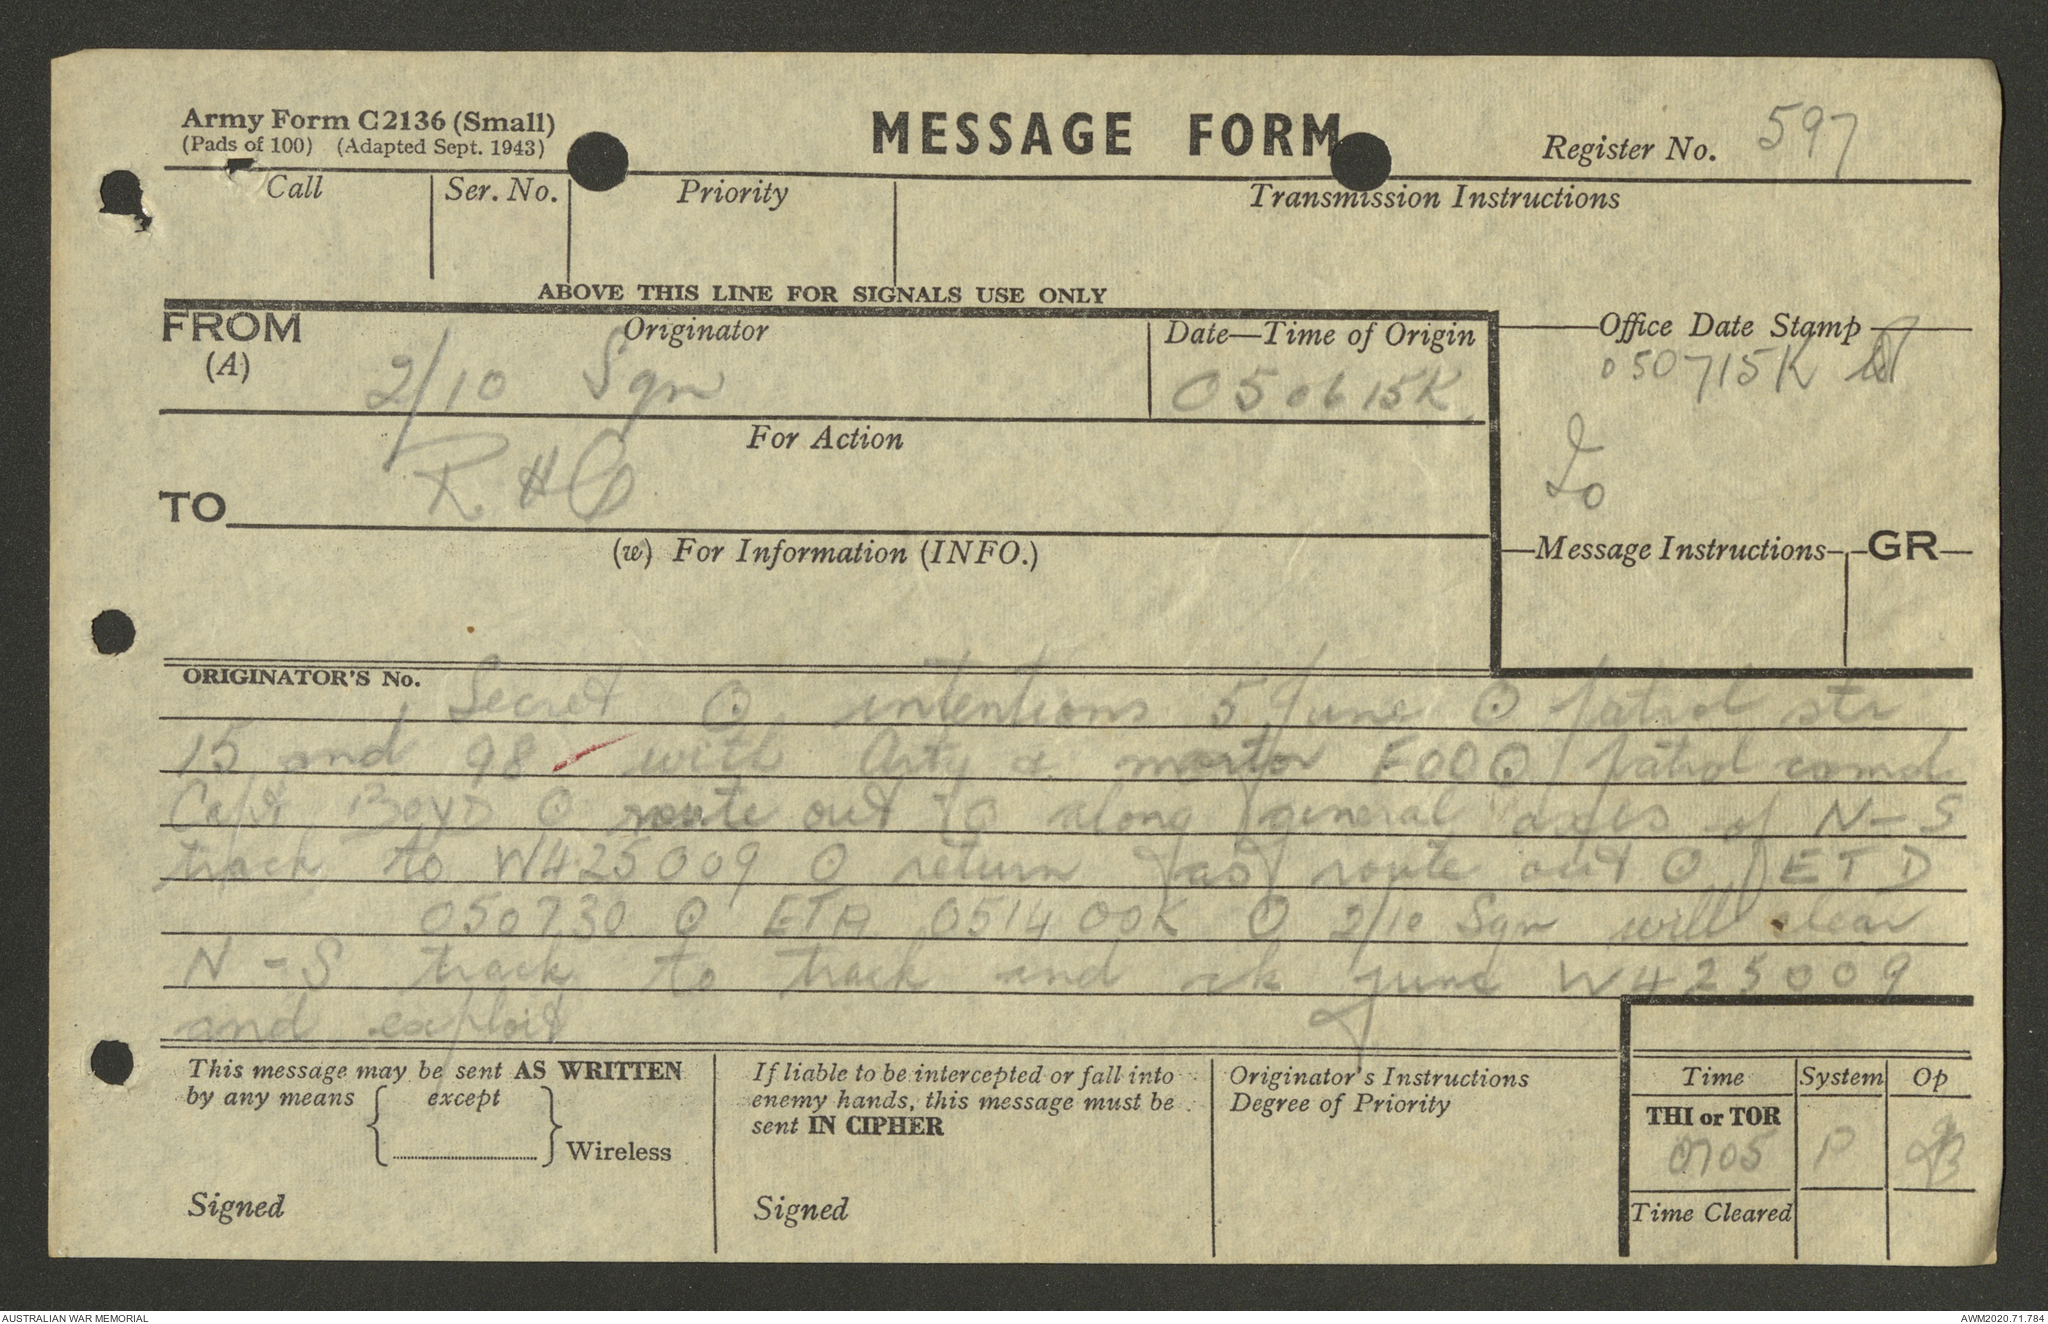 Army Form C2136 (Small)
(Pads of 100) (Adapted Sept. 1943)
MESSAGE FORM
Register No. 597
Call
Ser. No.
Priority
Transmission Instructions
ABOVE THIS LINE FOR SIGNALS USE ONLY
FROM
(A)
Originator
2/10 Sqn
Date—Time of Origin
050615K
Office Date Stamp
050715K
For Action
TO
RHQ
Io
(w) For Information (INFO.)
Message Instructions
GR
ORIGINATOR'S No.
Secret O intentions 5 June O patrol str
15 and 98 with Arty & mortar FOO O patrol comd
Capt Boyd O route out O along general axis of N-S
track to W425009 O return as route out O ETD
050730 O ETA 051400K O 2/10 Sqn will clear
N-S track to track and ck junc W425009
and exploit
This message may be sent AS WRITTEN
by any means except
Wireless
Signed
If liable to be intercepted or fall into
enemy hands, this message must be
sent IN CIPHER
Signed
Originator's Instructions
Degree of Priority
Time System Op
THI or TOR
0705 P
Time Cleared
AUSTRALIAN WAR MEMORIAL
AWM2020.71.784